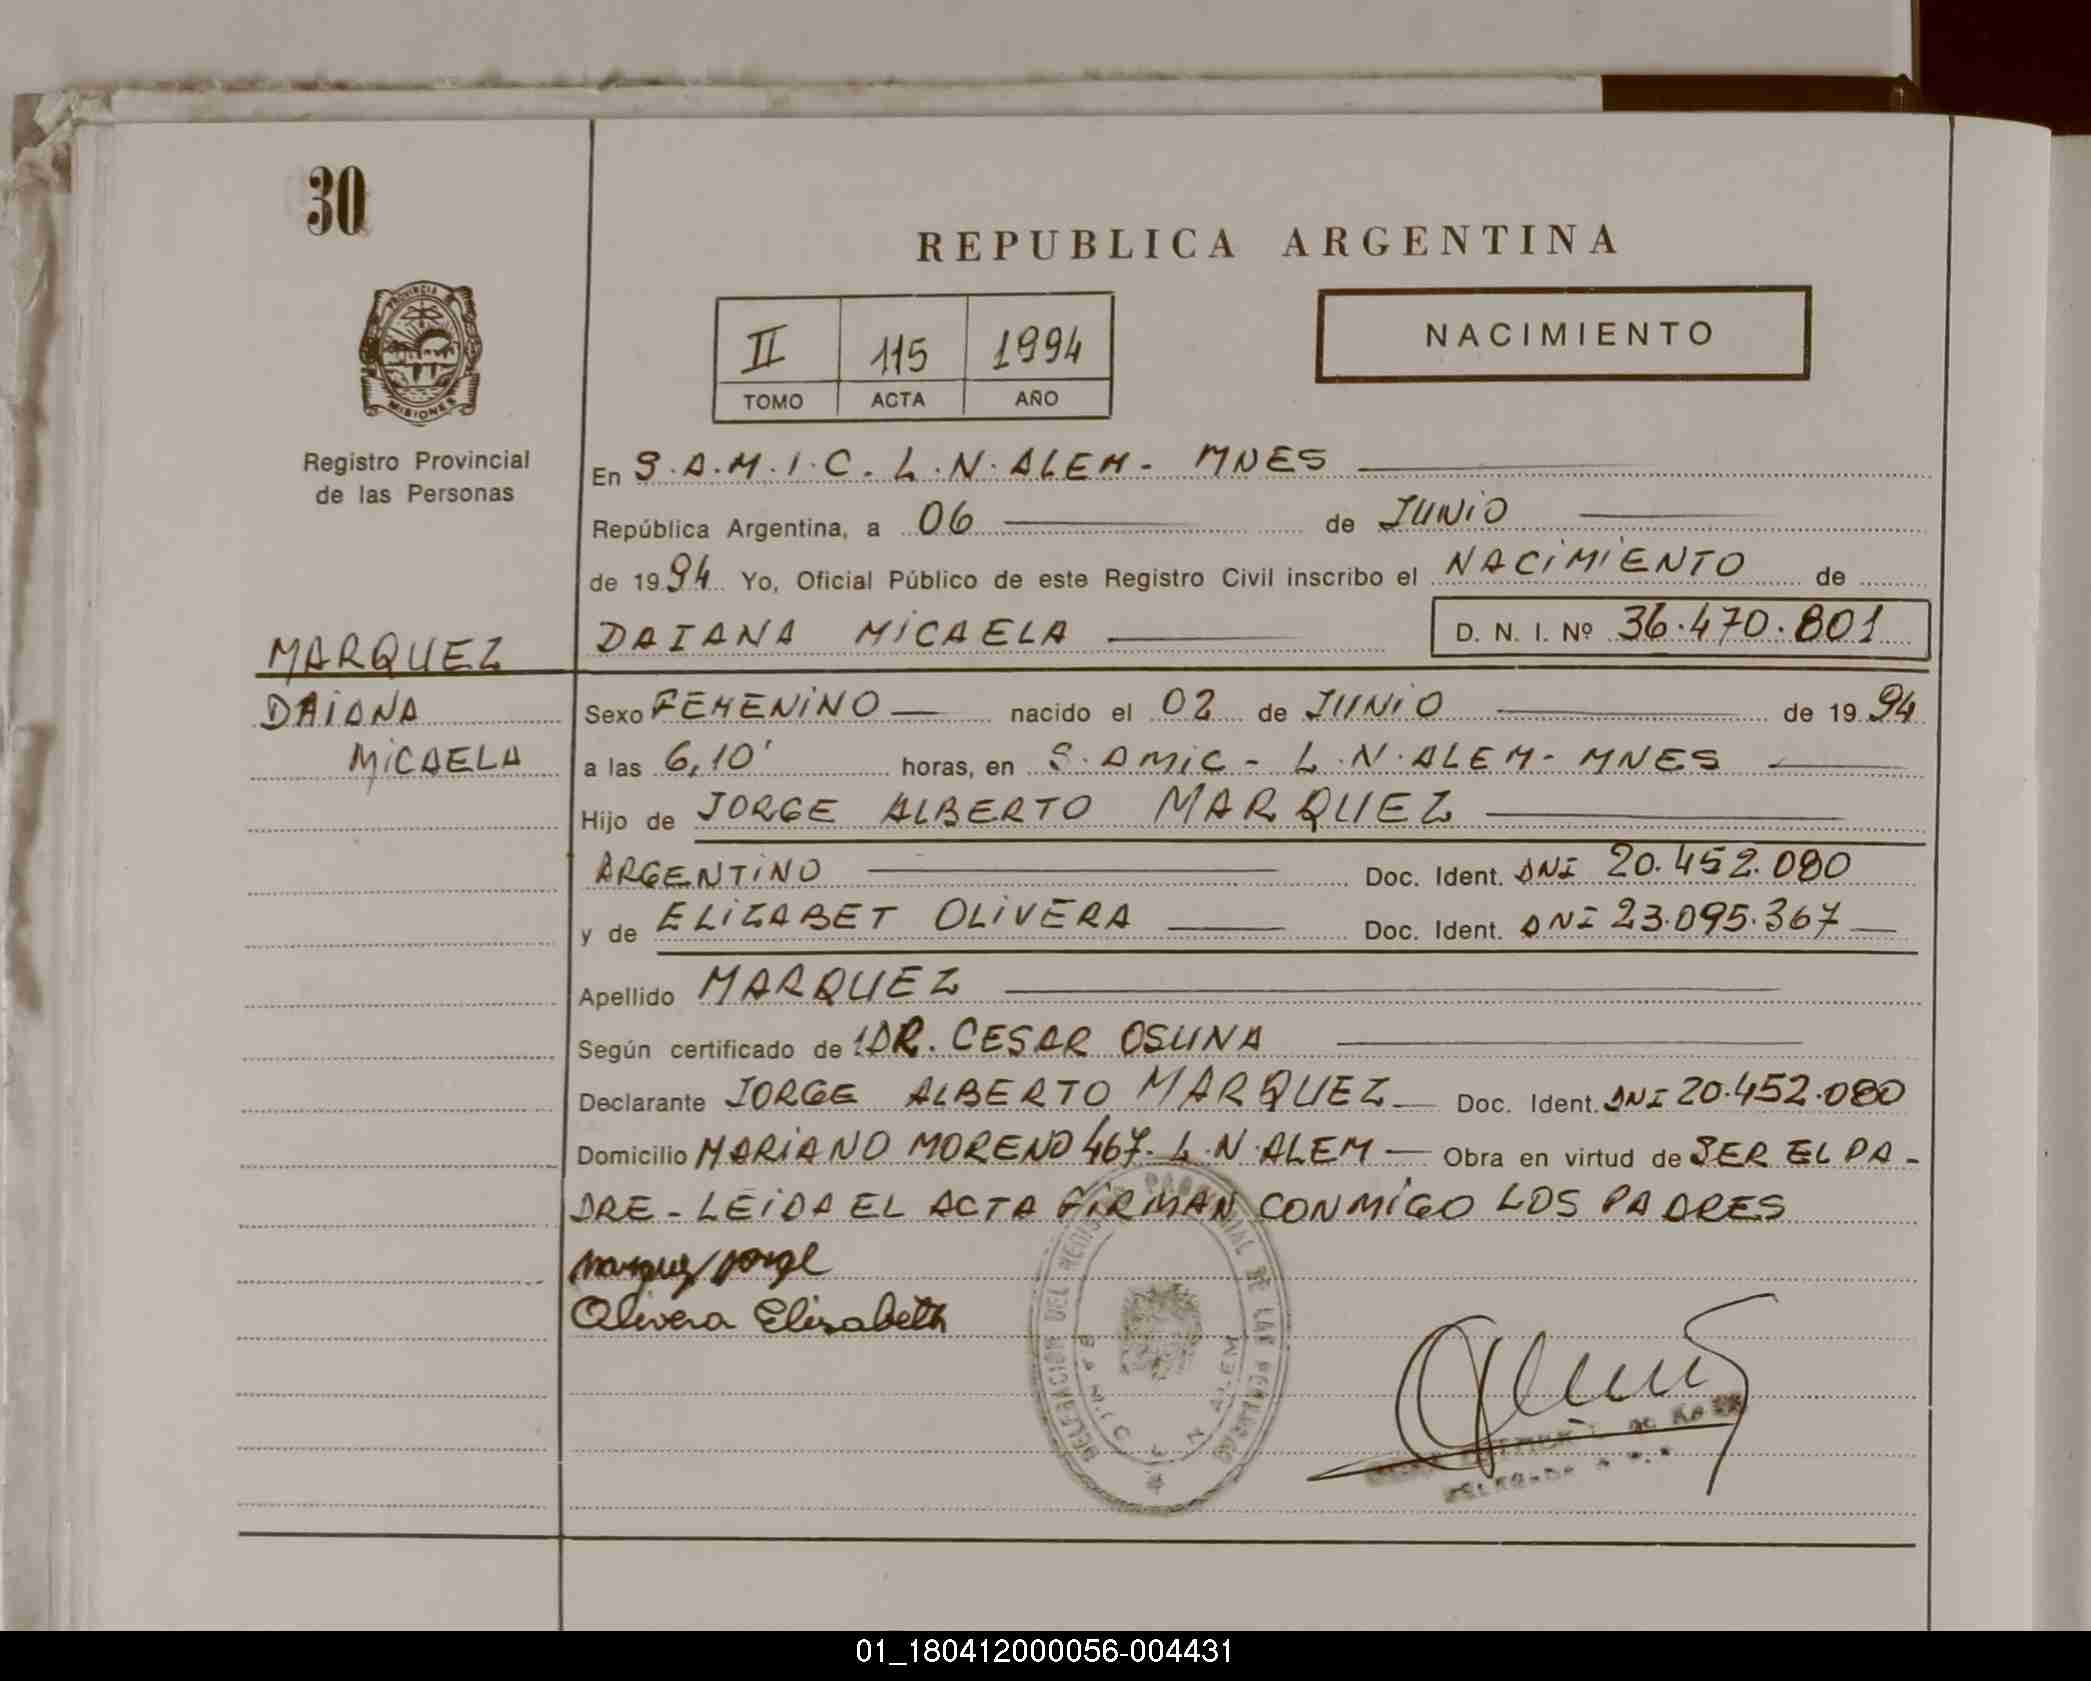 30
REPUBLICA ARGENTINA
PROVINCIA
MISIONES
II 115 1994
TOMO ACTA AÑO
NACIMIENTO
Registro Provincial
de las Personas
En S.A.M.I.C. L.N. ALEM - MNES
República Argentina, a 06 de JUNIO
de 1994 Yo, Oficial Público de este Registro Civil inscribo el NACIMIENTO de
DAIANA MICAELA D. N. I. Nº 36.470.801
MARQUEZ
DAIANA
MICAELA
Sexo FEMENINO nacido el 02 de JUNIO de 1994
a las 6,10' horas, en S.AMIC - L.N.ALEM - MNES
Hijo de JORGE ALBERTO MARQUEZ
ARGENTINO Doc. Ident. DNI 20.452.080
y de ELIZABET OLIVERA Doc. Ident. DNI 23.095.367
Apellido MARQUEZ
Según certificado de DR. CESAR OSUNA
Declarante JORGE ALBERTO MARQUEZ Doc. Ident. DNI 20.452.080
Domicilio MARIANO MORENO 467. L.N.ALEM Obra en virtud de SER EL PA-
DRE - LEIDA EL ACTA FIRMAN CONMIGO LOS PADRES
Marquez Jorge
Olivera Elisabeth
DELEGACION DEL REGISTRO PROVINCIAL DE LAS PERSONAS
L N ALEM
01_180412000056-004431